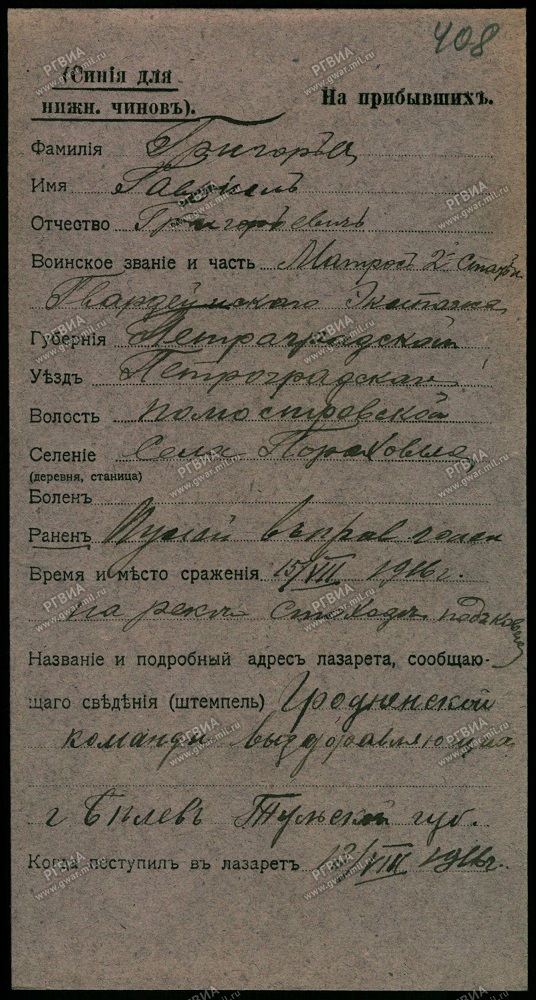 408
(Синія для
нижн. чиновъ).
На прибывшихъ.
Фамилія Григорьев
Имя Гавріилъ
Отчество Григорьевичъ
Воинское званіе и часть Матрос 2 Стат
Гвардейского Экипажа
Губернія Петроградской
Уѣздъ Петроградскаго
Волость
Селеніе Села
(деревня, станица)
Боленъ
Раненъ Пулей в прав голен
Время и мѣсто сраженія 15/VII 1916 г.
на реке Стоходе под
Названіе и подробный адресъ лазарета, сообщаю-
щаго свѣдѣнія (штемпель) Гродненской
команды выздоравляющих
г Бѣлевъ Тульской губ.
Когда поступилъ въ лазаретъ 1916 г.
РГВИА
www.gwar.mil.ru